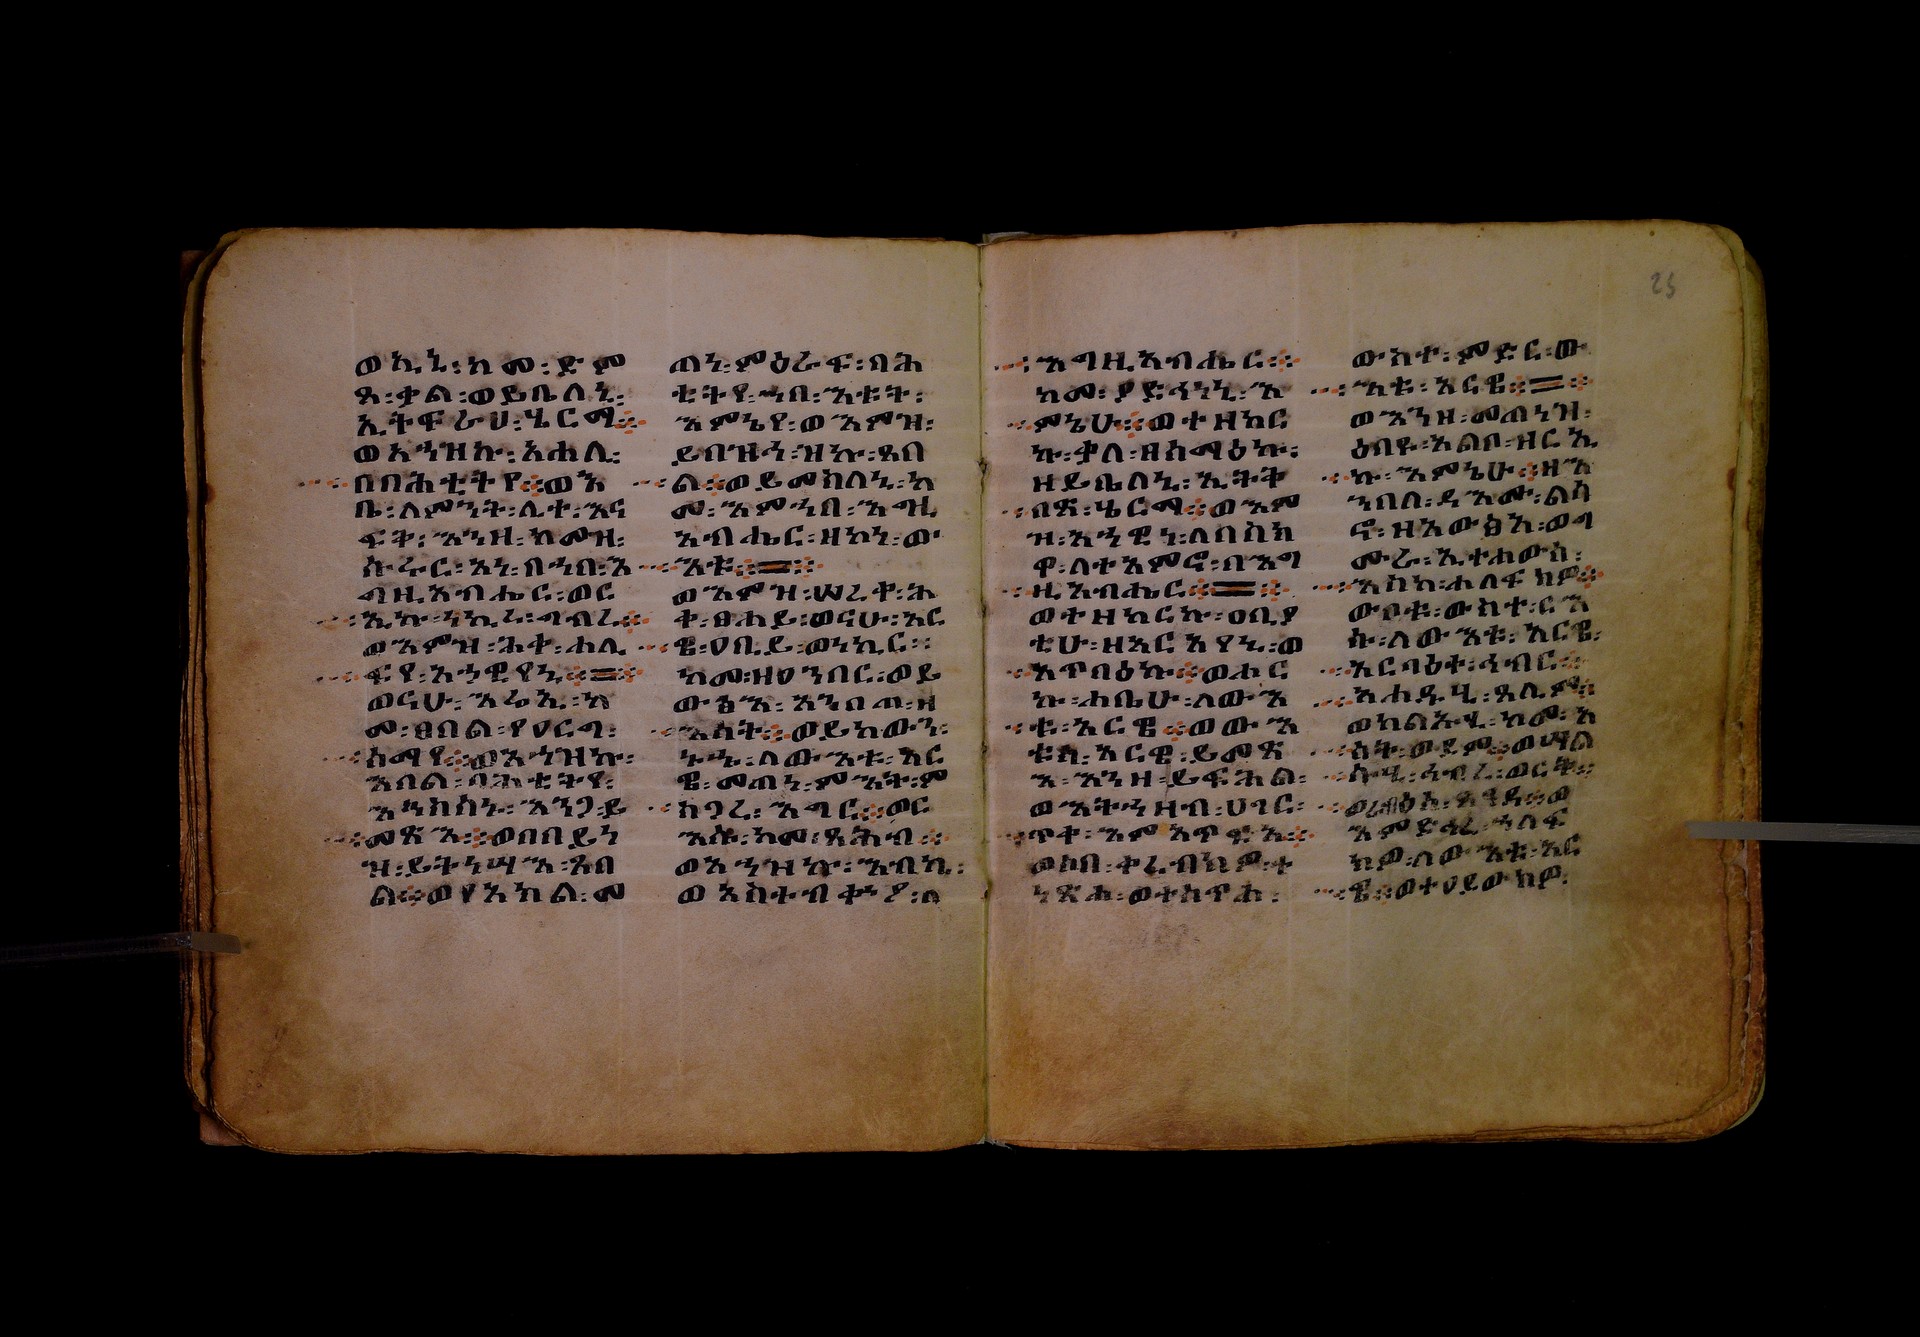 ወኢኒ፡ከመ፡ድም
ጸ፡ቃል፡ወይቤለኒ፡
ኢትፍራህ፡ሄርማ።
ወእንዘኩ፡እሐሊ፡
በባሕቲትየ።ወእ
ቤ፡ለምንት፡ሊተ፡እና
ፍቅ፡እንዘ፡ከመዝ፡
ኩሩር፡አነ፡በኀበ፡እ
ግዚአብሔር፡ወር
ኢኩ፡ነኪረ፡ግብረ።
ወእምዝ፡ሕቀ፡ሐሊ
ፍየ፡አኀዊየኒ።
ወናሁ፡እሬኢ፡ከ
መ፡ፀበል፡የዐርግ፡
ሰማየ።ወእንዝኩ፡
እብል፡በሕቲትየ፡
እንከሰኑ፡እንጋይ
መጽአ።ወበበይነ
ዝ፡ይትነሣእ፡ጸበ
ል።ወየአክል፡መ
ጠነ፡ምዕራፍ፡በሕ
ቲትየ፡ኀበ፡እቲት፡
እምኔየ፡ወእምዝ፡
ይበዝኅ፡ዝኩ፡ጸበ
ል።ወይመስለኒ፡ከ
መ፡እምኀበ፡እግዚ
አብሔር፡ዘኮነ፡ው
እቱ።
ወእምዝ፡ሠረቀ፡ሕ
ቀ፡ፀሐይ፡ወናሁ፡አር
ዌ፡ዐቢይ፡ወነኪር፡
ከመ፡ዘዐንበር፡ወይ
ውፅእ፡እንበጣ፡ዘ
እሳት።ወይከውን፡
ኑኁ፡ለውእቱ፡አር
ዌ፡መጠነ፡ምእት፡ም
ስጋረ፡እግር።ወር
እሱ፡ከመ፡ጻሕብ።
ወእንዝኩ፡እብኪ፡
ወእስተብቍዖ፡ለ
እግዚአብሔር።
ከመ፡ያድኅነኒ፡እ
ምኔሁ።ወተዘከር
ኩ፡ቃለ፡ዘሰማዕኩ፡
ዘይቤለኒ፡ኢትት
በጽ፡ሄርማ።ወእም
ዝ፡አኀዊነ፡ለበስክ
ዋ፡ለተአምኖ፡በእግ
ዚአብሔር።
ወተዘከርኩ፡ዐቢያ
ቲሁ፡ዘአርአየኒ፡ወ
አጥባዕኩ።ወሖር
ኩ፡ሐቤሁ፡ለውእ
ቱ፡አርዌ።ወውእ
ቱሰ፡አርዌ፡ይመጽ
እ፡እንዘ፡ይፍሕል፡
ወእትኀዘብ፡ሀገር፡
ጥቀ፡እምአጥፍአ።
ወሶበ፡ቀረብክዎ፡ተ
ነጽሐ፡ወተሰጥሐ፡
ውስተ፡ምድር፡ው
እቱ፡አርዌ።
ወእንዘ፡መጠነዝ፡
ዕበዩ፡አልቦ፡ዘርኢ
ኩ፡እምኔሁ።ዘእ
ንበለ፡ዳእሙ፡ልሳ
ኖ፡ዘአውፅአ፡ወግ
ሙራ፡ኢተሐውሰ፡
እስከ፡ሐለፍክዎ።
ውቦቱ፡ውስተ፡ርእ
ሱ፡ለውእቱ፡አርዌ፡
አርባዕቱ፡ኅብር።
አሐዱሂ፡ጸሊም።
ወክልኡሂ፡ከመ፡እ
ሳት፡ወደም።ወሣል
ሱሂ፡ኅብረ፡ወርቅ።
ወራብዕሰ፡ጸዓዳ።ወ
እምድኅረ፡ኀለፍ
ክዎ፡ለውእቱ፡አር
ዌ።ወተዐየውክዎ፡
25